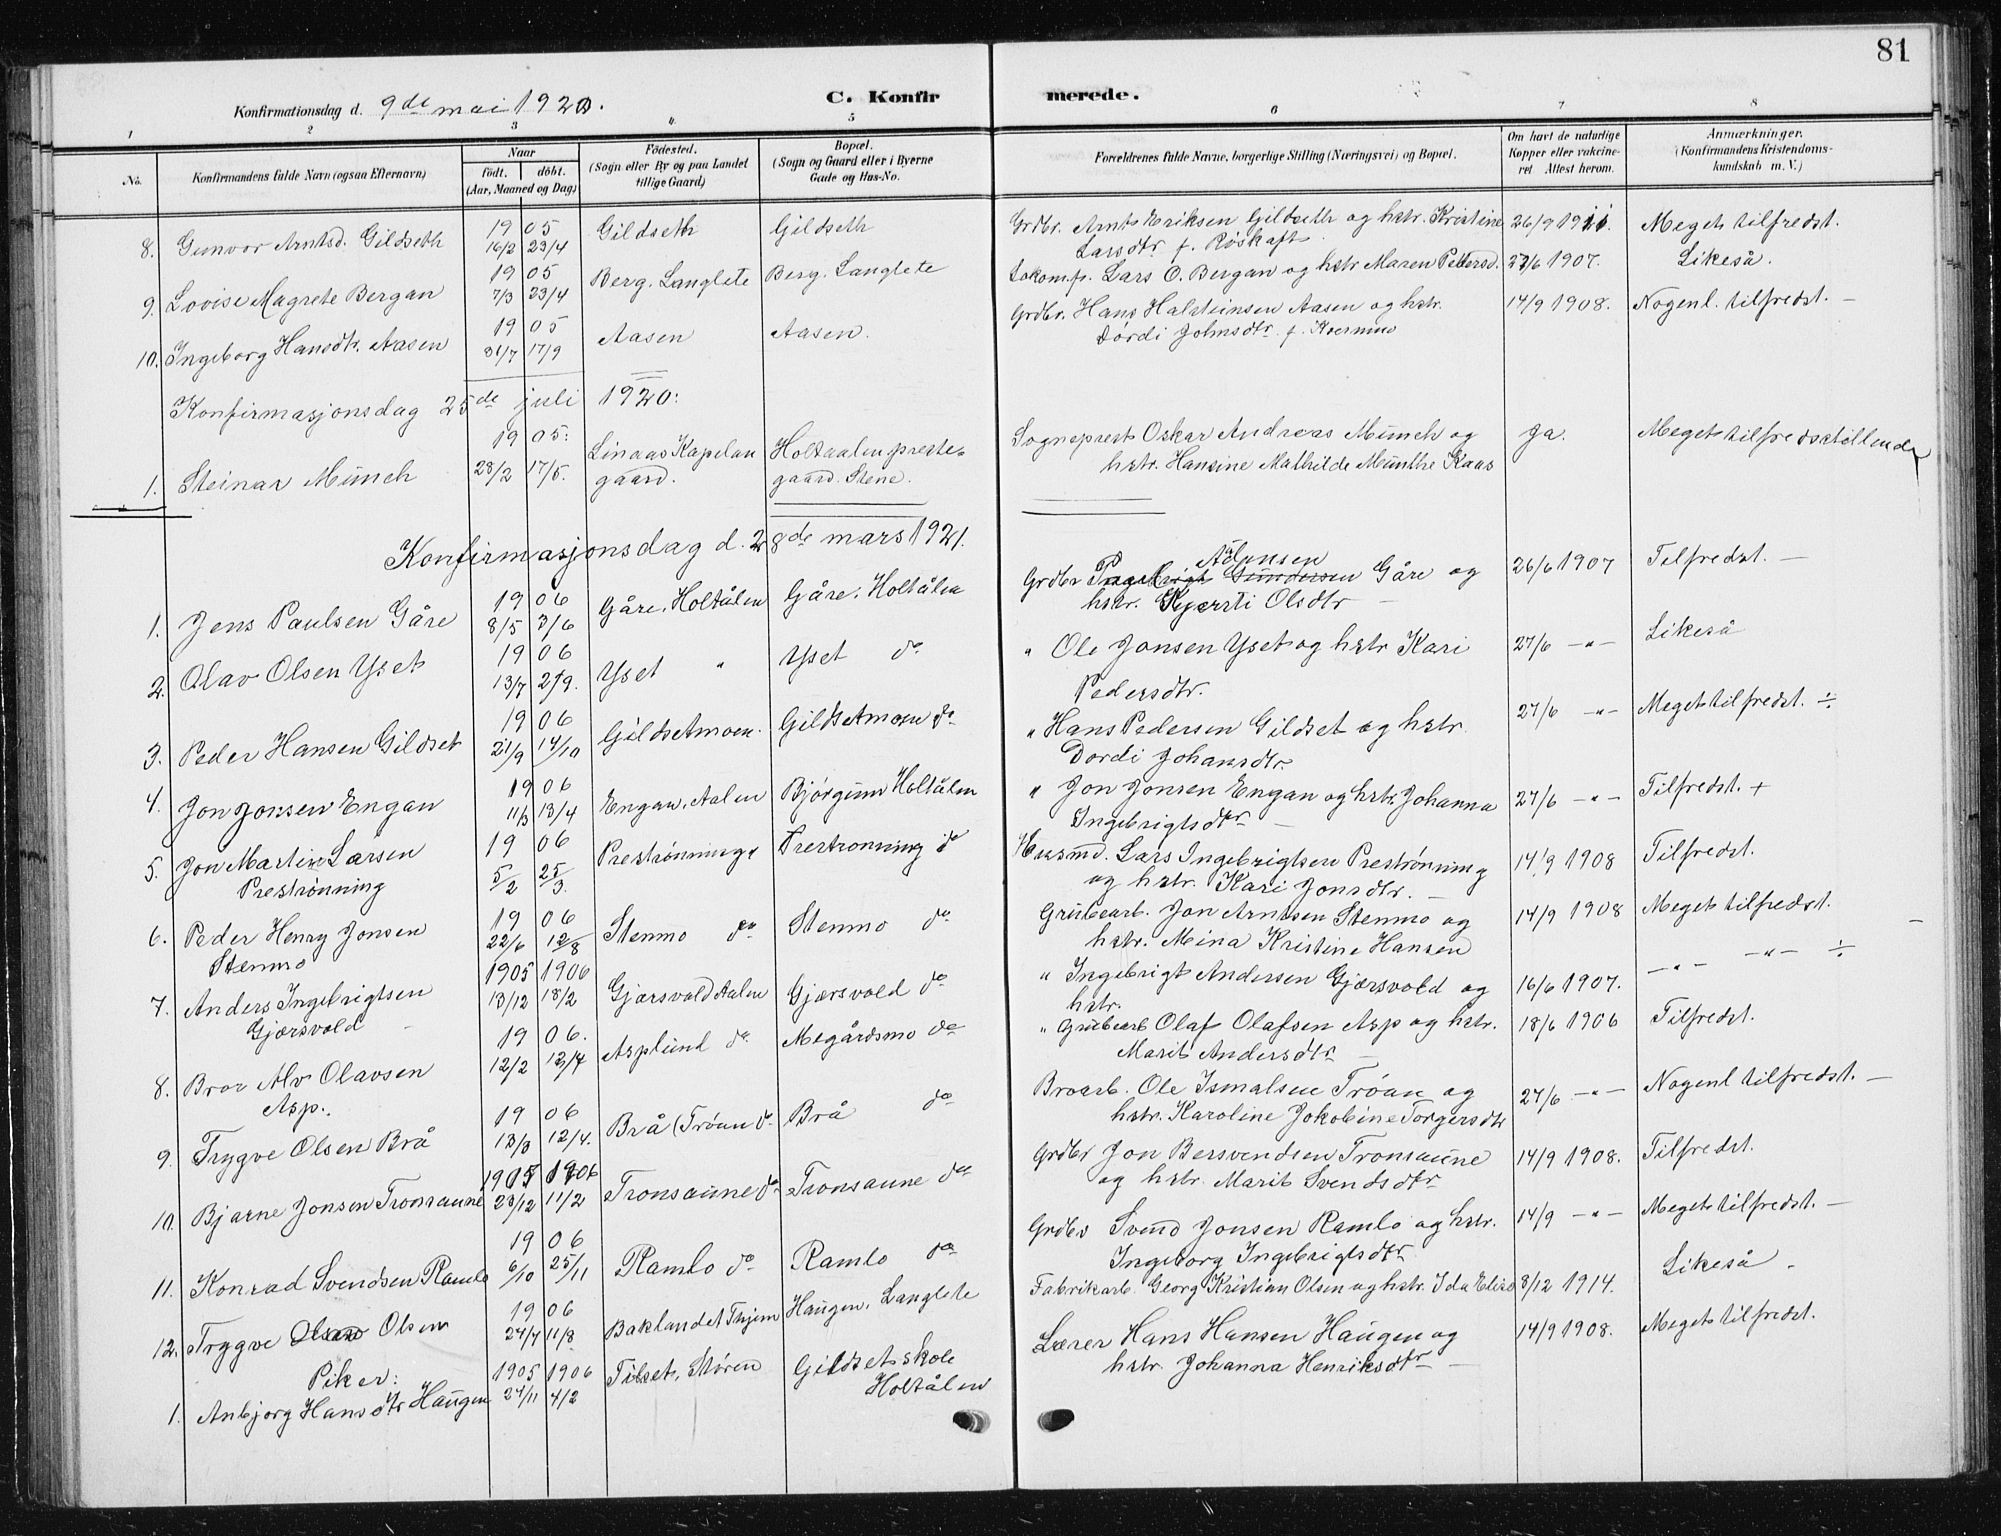 81
Konfirmationsdag d. 9de mai 1920.
C. Konfirmerede.
1 2 3 4 5 6 7 8
No.
Konfirmandens fulde Navn (ogsaa Efternavn)
Naar
født. døbt.
(Aar, Maaned og Dag)
Fødested.
(Sogn eller By og paa Landet
tillige Gaard)
Bopæl.
(Sogn og Gaard eller i Byerne
Gade og Hus-No.
Forældrenes fulde Navne, borgerlige Stilling (Næringsvei) og Bopæl.
Om havt de naturlige
Kopper eller vakcine-
ret Attest herom.
Anmærkninger.
(Konfirmandens Kristendoms-
kundskab m. V.)
8. Gunvor Arntsd. Gildseth 1905 16/2 23/4 Gildseth Gildseth Grdbr. Arnt Eriksen Gildseth og hstr. Kristine 26/9 1911. Meget tilfredst.
Larsdtr f. Røskaft.
9. Lovise Magrete Bergan 1905 7/3 23/4 Berg. Langlete Berg. Langlete Lokomf. Lars O. Bergan og hstr Maren Petersd. 23/6 1907. Likeså.
10. Ingeborg Hansdtr. Aasen 1905 31/7 17/9 Aasen Aasen. Grdbr. Hans Halsteinsen Aasen og hstr. 14/9 1908. Nogenl. tilfredst. —
Dordi Johnsdtr. f. Kvernmo
Konfirmasjonsdag 25de juli 1920:
1. Steinar Münch 1905: 28/2 17/5. Linaas Kapelangaard. Holtaalen prestegaard. Stene. Sogneprest Oskar Andreas Münch og Ja. Meget tilfredsstillende
hstr. Hansine Mathilde Munthe Kaas
Konfirmasjonsdag d. 28de mars 1921.
1. Jens Paulsen Gåre 1906 8/5 3/6 Gåre, Holtålen Gåre, Holtålen Grdbr Ingebrigt Gundersen Gåre og 26/6 1907 Tilfredst. —
hstr. Kjersti Olsdtr —
2. Olav Olsen Yset 1906 13/7 2/9. Yset " Yset do " Ole Jonsen Yset og hstr Kari 27/6 —"— Likeså
Pedersdtr.
3. Peder Hansen Gildset 1906 21/9 14/10 Gildsetmoen. Gildsetmoen do " Hans Pedersen Gildset og hstr. 27/6 —"— Meget tilfredst. ÷
Dordi Johansdtr.
4. Jon Jonsen Engan 1906 11/3 13/4 Engan, Aalen Bjørgum Holtålen " Jon Jonsen Engan og hstr. Johanna 27/6 —"— Tilfredst. +
Ingebrigtsdtr —
5. Jon Martin Larsen 1906 5/2 25/3. Prestrønning " Prestronning do Husmd. Lars Ingebrigtsen Prestrønning 14/9 1908 Tilfredst.
Prestrønning og hstr. Kari Jonsdtr. —
6. Peder Henry Jonsen 1906 22/6 12/8 Stenmo do Stenmo do Grubearb. Jon Arntsen Stenmo og 14/9 1908 Meget tilfredst. —
Stenmo hstr. Mina Kristine Hansen
7. Anders Ingebrigtsen 1905 1906 13/12 18/2 Gjærsvold Aalen Gjærsvold do " Ingebrigt Andersen Gjærsvold og 16/6 1907. —"— —"— ÷
Gjærsvold hstr.
8. Bror Alv Olavsen 1906. 12/2 13/4 Asplund do Megårdsmo do " Grubearb Olaf Olafsen Asp og hstr. 18/6 1906 Tilfredst.
Asp. Marit Andersdtr —
9. Trygve Olsen Brå 1906 13/3 12/4. Brå (Trøan do Brå do Broarb. Ole Ismalsen Trøan og 27/6 —"— Nogenl tilfredst. —
hstr. Karoline Jokobine Torgersdtr
10. Bjarne Jonsen Tronsaune 1905 1906 23/12 11/2 Tronsaune do Tronsaune do Grdbr Jon Bersvendsen Tronsaune 14/9 1908. Tilfredst.
og hstr. Marit Svendsdtr
11. Konrad Svendsen Ramlo 1906 6/10 25/11 Ramlo do Ramlo do Grdbr Svend Jonsen Ramlo og hstr. 14/9 —"— Meget tilfredst. —
Ingeborg Ingebrigtsdtr
12. Trygve Olsen 1906 24/7 11/8 Baklandet Thjem Haugen, Langlete Fabrikarb. Georg Kristian Olsen og hstr. Ida Elise 8/12 1914. Likeså —
Piker:
1. Anbjørg Hansdtr Haugen 1905 1906 24/11 4/2 Tilset, Støren Gildset skole Lærer Hans Hansen Haugen og 14/9 1908. Meget tilfredst.
Holtålen hstr. Johanna Henriksdtr —